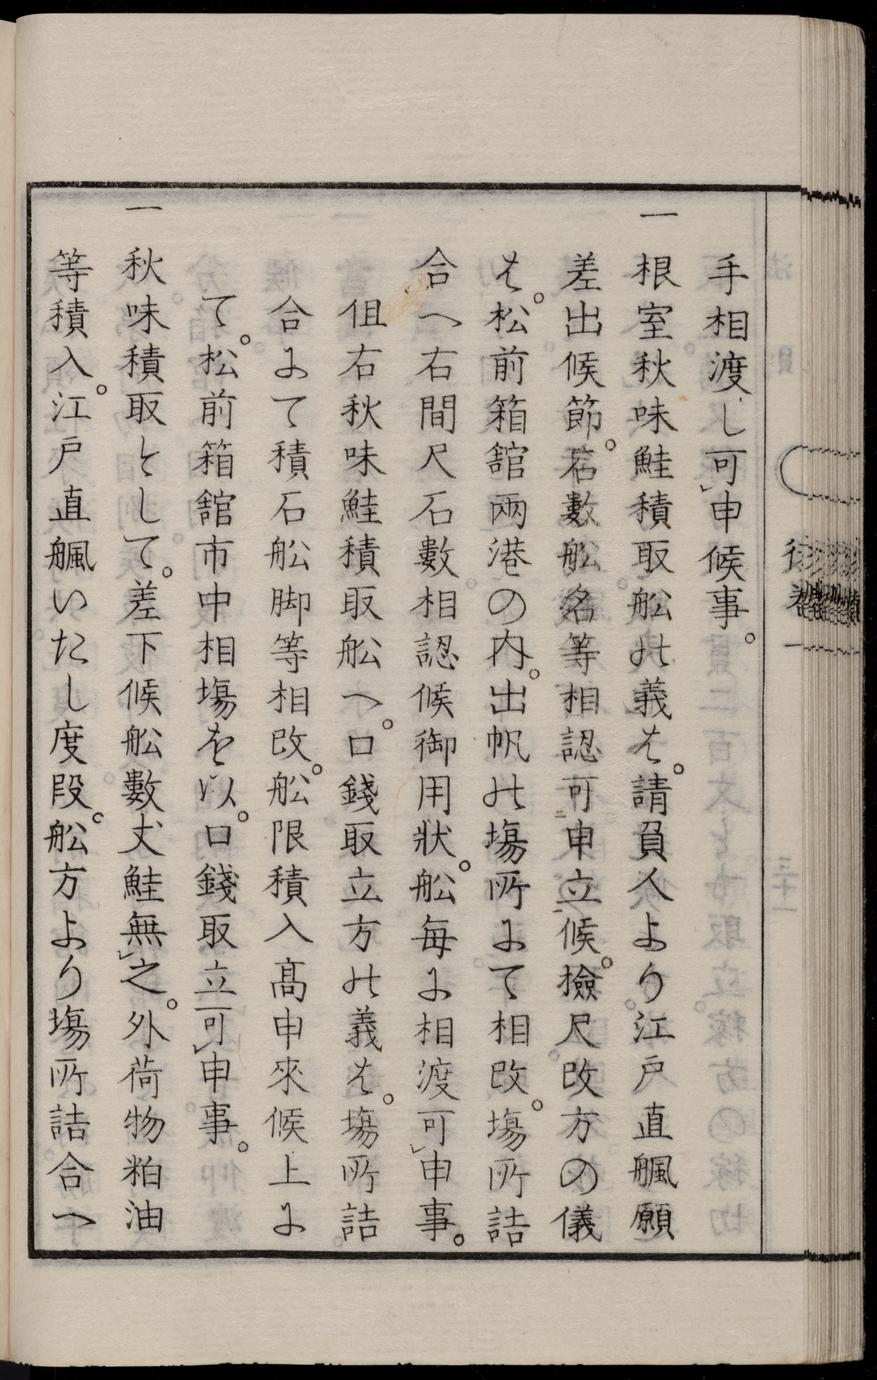 手相渡し可申候事。
一根室秋味鮭積取舩の義は。請負人より江戸直艉願
差出候節。石數舩名等相認可申立候。撿尺改方の儀
は。松前箱舘兩港の内。出帆の塲所にて相改。塲所詰
合へ右間尺石數相認候御用狀。舩毎に相渡可申事。
但右秋味鮭積取舩へ。口錢取立方の義は。塲所詰
合にて積石舩脚等相改。舩限積入髙申來候上に
て。松前箱舘市中相塲を以。口錢取立可申事。
一秋味積取として。差下候舩數丈鮭無之。外荷物粕油
等積入。江戸直艉いたし度段。舩方より塲所詰合へ